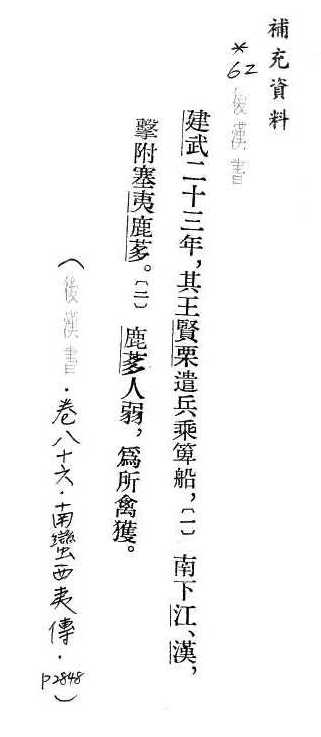 補充資料
*62 後漢書
建武二十三年，其王賢栗遣兵乘箄船，〔一〕南下江、漢，
擊附塞夷鹿茤。〔二〕鹿茤人弱，爲所禽獲。
（後漢書．卷八十六．南蠻西夷傳．p2848）